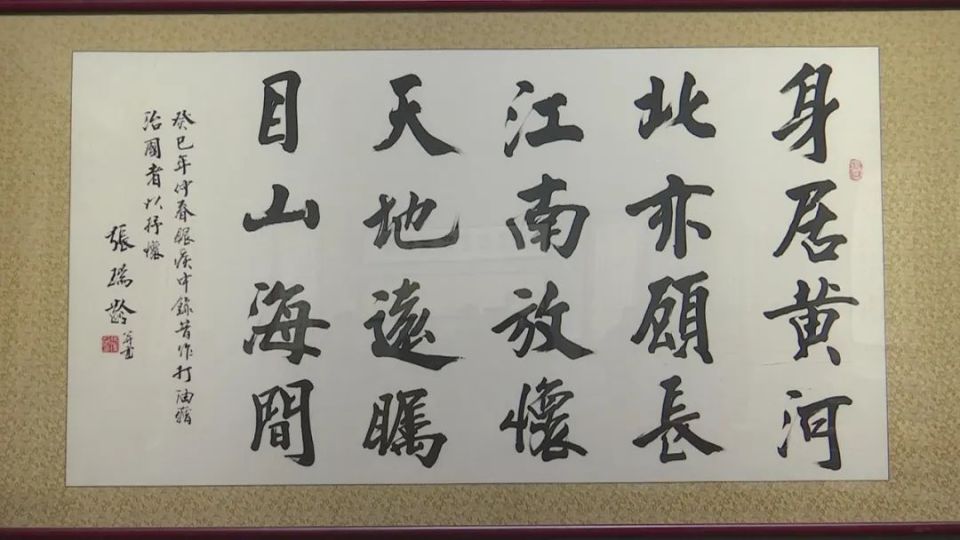 身居黄河
北亦顧長
江南放懷
天地遠矚
目山海間
癸巳年仲春眼疾中錄昔作打油縮
治國者以抒懷
張瑞齡